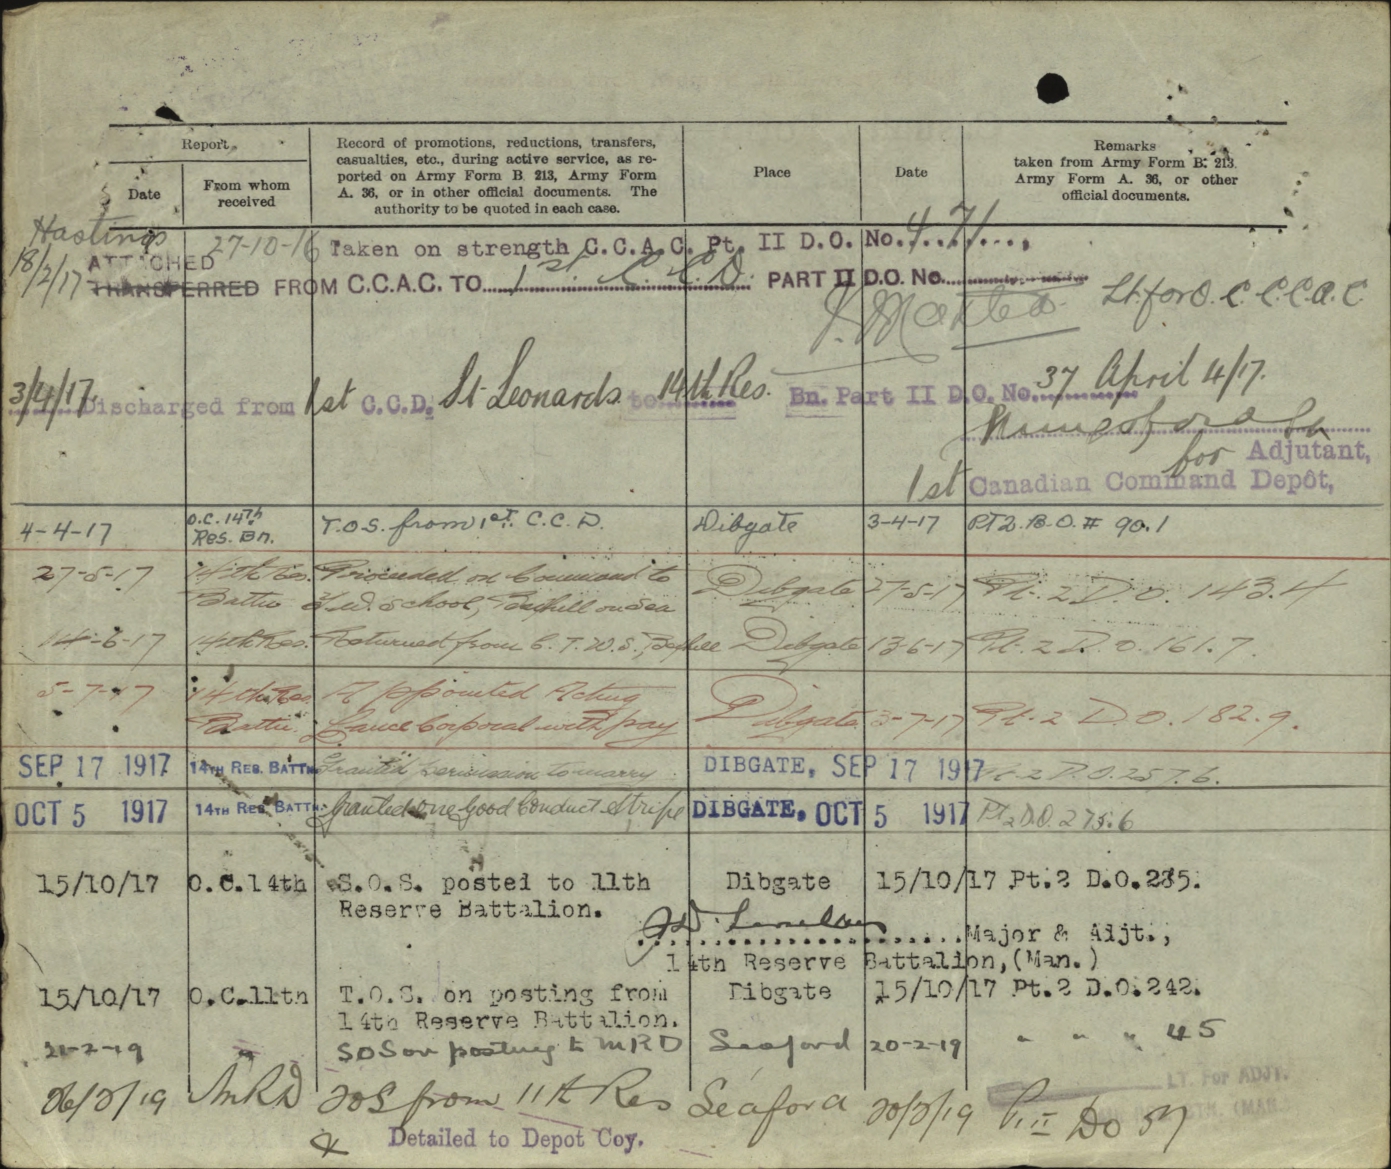 Report
Date
From whom
received
Record of promotions, reductions, transfers,
casualties, etc., during active service, as re-
ported on Army Form B 213, Army Form
A. 36, or in other official documents. The
authority to be quoted in each case.
Place
Date
Remarks
taken from Army Form B. 213.
Army Form A. 36, or other
official documents.
Hastings 27-10-16 Taken on strength C.C.A.C. Pt. II D.O. No. 471
18/2/17 ATTACHED
TRANSFERRED FROM C.C.A.C. TO 1st. C.C.D. PART II D.O. No.
Lt for O.C. C.C.A.C
3/4/17. Discharged from 1st C.C.D. St Leonards to 14th Res. Bn. Part II D.O. No. 37 April 4/17.
for Adjutant,
1st Canadian Command Depôt,
4-4-17 O.C. 14th Res. Bn. T.O.S. from 1st. C.C.D. Dibgate 3-4-17 PT 2. B.O. # 90.1
27-5-17 14th Res. Proceeded on Command to Dibgate 27-5-17 Pt. 2 D.O. 143.4
Battn School, Bexhill on Sea
14-6-17 14th Res. Returned from C.T.W.S, Bexhill Dibgate 13-6-17 Pt. 2 D.O. 161.7.
5-7-17 14th Res. Appointed Acting
Battn. Lance Corporal with pay Dibgate 3-7-17 Pt. 2 D.O. 182.9.
SEP 17 1917 14TH RES. BATTN. Granted permission to marry DIBGATE, SEP 17 1917 Pt. 2 D.O. 257.6.
OCT 5 1917 14TH RES. BATTN. Granted one Good Conduct Stripe DIBGATE, OCT 5 1917 Pt 2 D.O. 275.6
15/10/17 O.C.14th S.O.S. posted to 11th Dibgate 15/10/17 Pt.2 D.O.285.
Reserve Battalion.
Major & Adjt.,
14th Reserve Battalion,(Man.)
15/10/17 O.C.11th T.O.S. on posting from Dibgate 15/10/17 Pt.2 D.O.242.
14th Reserve Battalion.
21-2-19 SOS on posting to MRD Seaford 20-2-19 " " " 45
26/2/19 MRD TOS from 11th Res Seaford 20/2/19 Pt II DO 57
& Detailed to Depot Coy.
LT. For ADJT.
(MAN.)